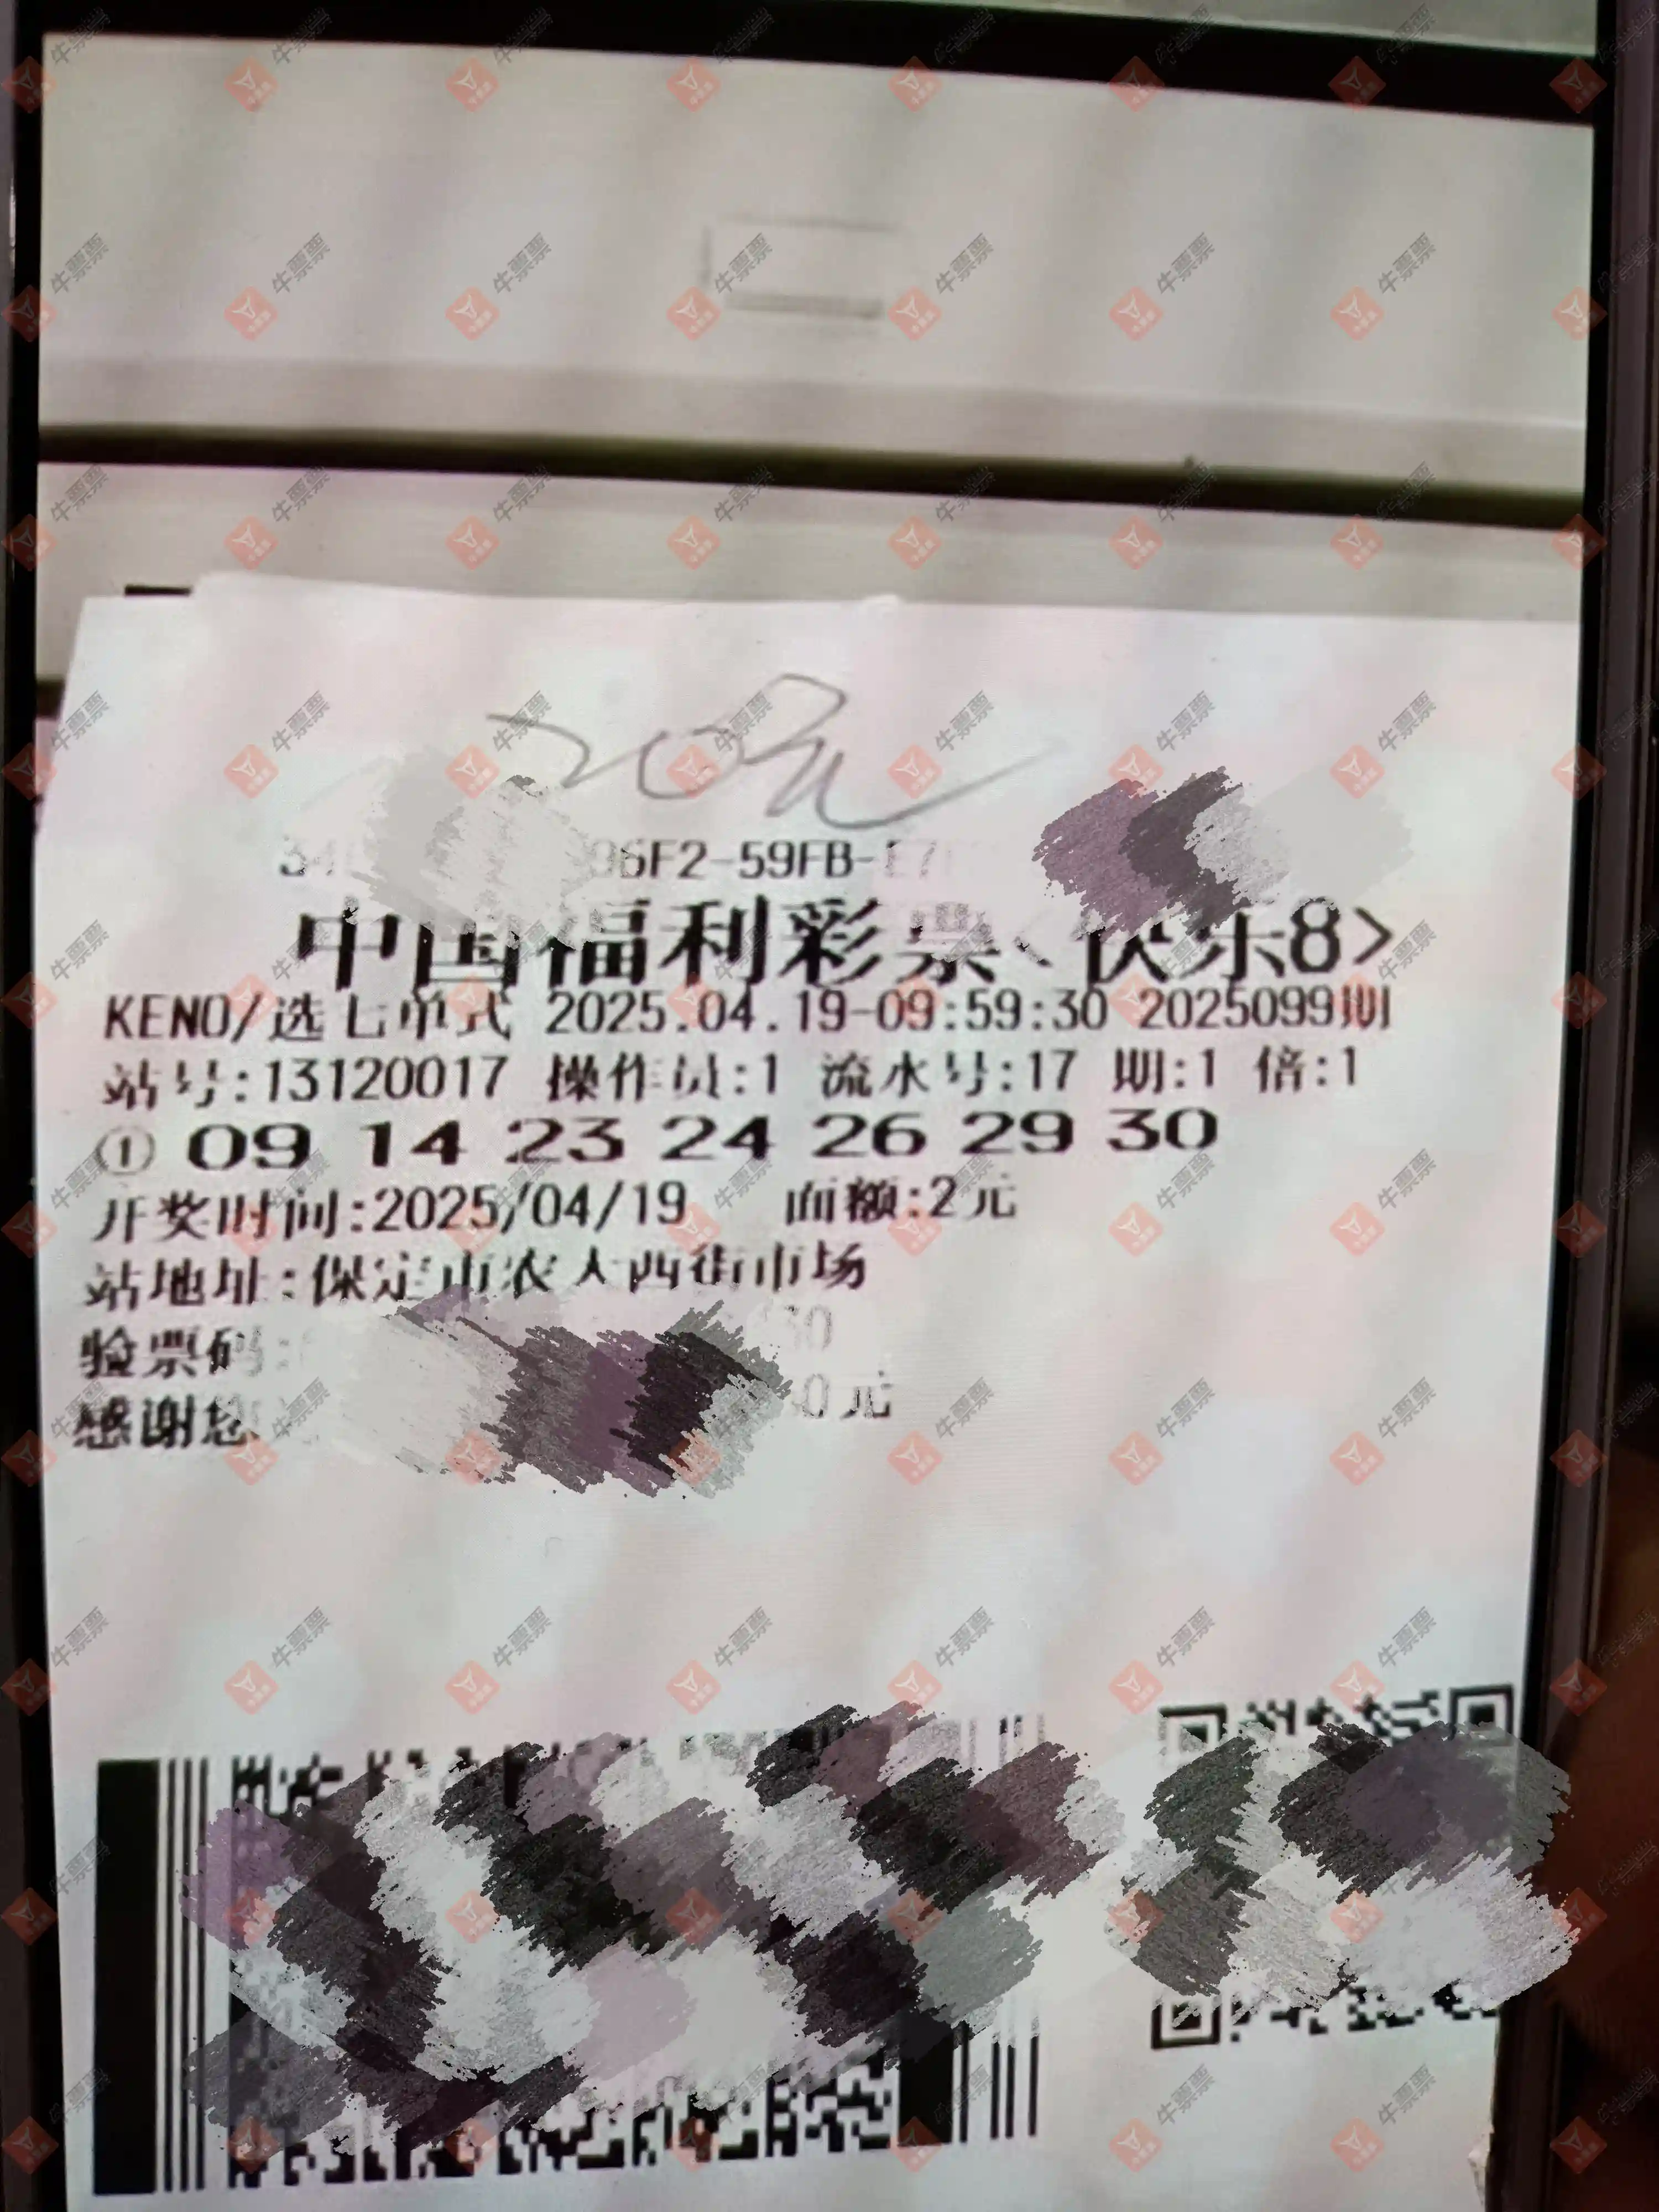 20元
06F2-59FB-E7
中国福利彩票<快乐8>
KENO/选七单式 2025.04.19-09:59:30 2025099期
站号:13120017 操作员:1 流水号:17 期:1 倍:1
① 09 14 23 24 26 29 30
开奖时间:2025/04/19 面额:2元
站地址:保定市农大西街市场
验票码:
感谢您 0元
牛票票